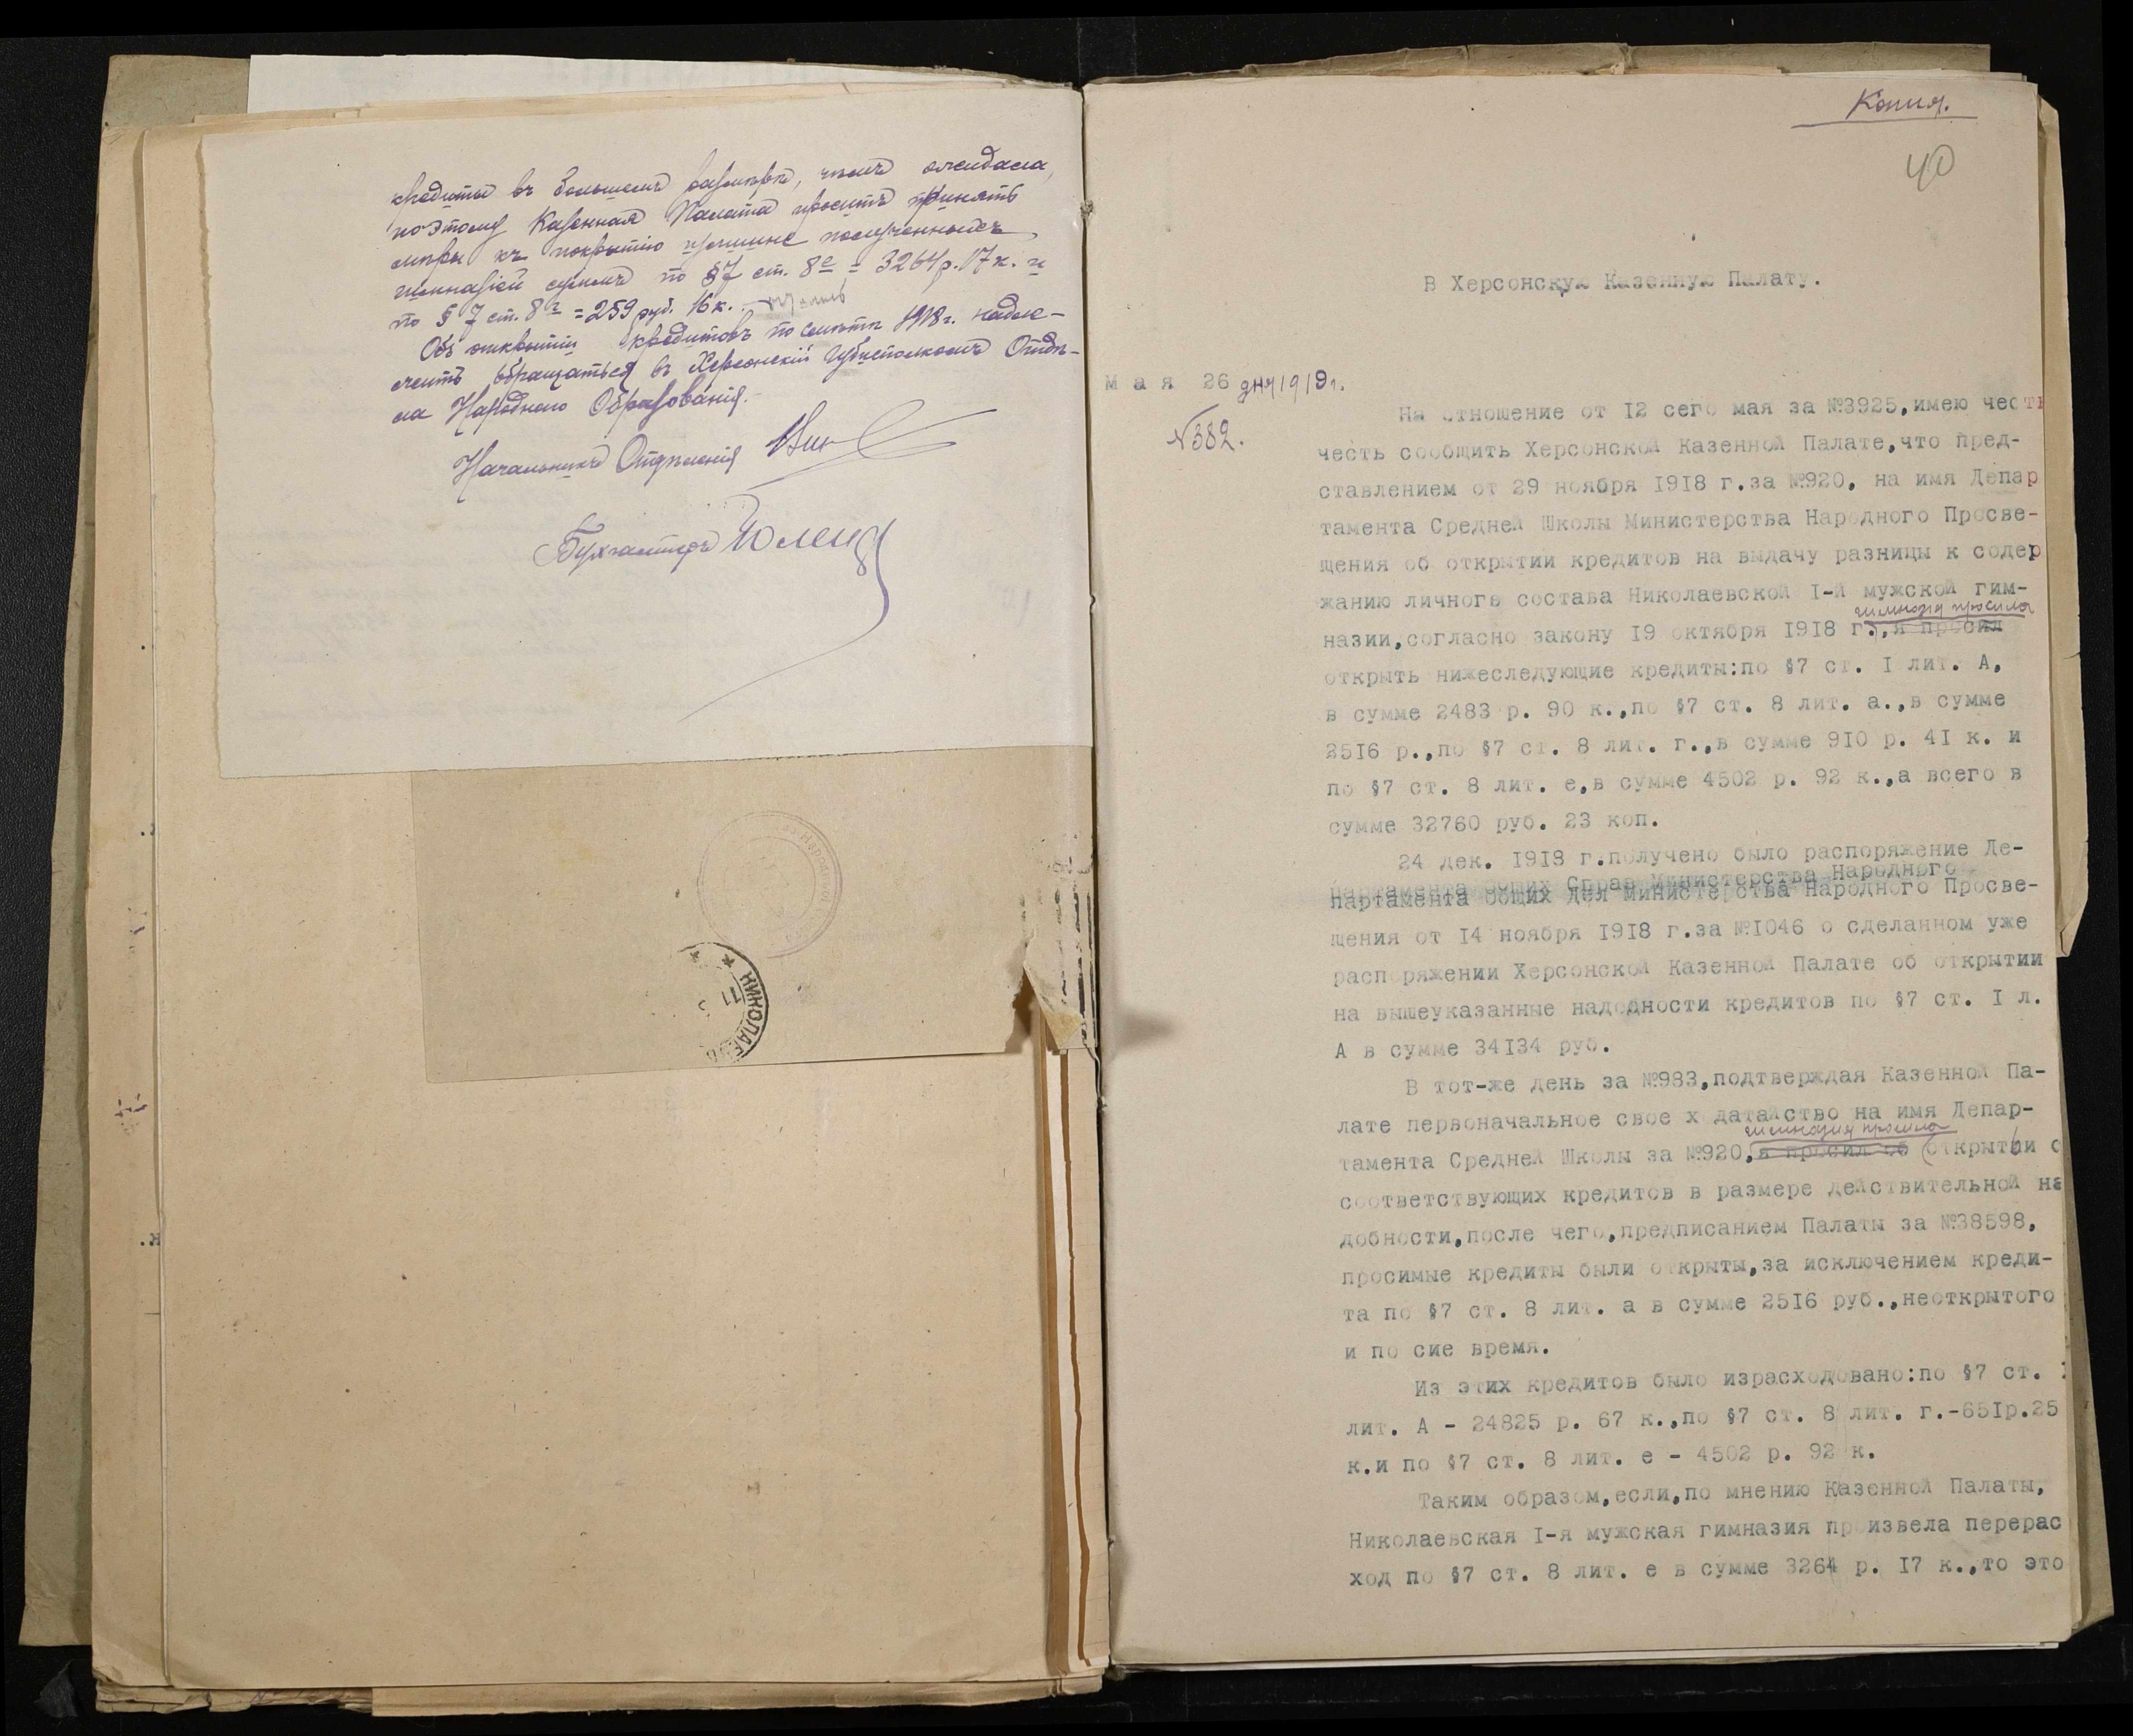 кредиты въ большемъ размѣрѣ, чѣмъ ожидала,
поэтому Казенная Палата проситъ принять
мѣры къ покрытію излишне полученныхъ
гимназіей суммъ по §7 ст. 8е = 3264р. 17к. и
по § 7 ст. 8г = 259 руб. 16 к. –
Объ открытіи кредитовъ по смѣтѣ 1918г. надле-
житъ обращаться въ Херсонскій Губисполкомъ Отдѣ-
ла Народнаго Образованія. –
Начальникъ Отдѣленія
Бухгалтеръ
НИКОЛАЕВ
Копия.
40
В Херсонскую Казенную Палату.
мая 26 дня 1919г.
№382.
На отношение от I2 сего мая за №3925,имею честь
честь сообщить Херсонской Казенной Палате,что пред-
ставлением от 29 ноября I9I8 г.за №920, на имя Депар
тамента Средней Школы Министерства Народного Просве-
щения об открытии кредитов на выдачу разницы к содер
жанию личного состава Николаевской I-й мужской гим-
гимназия просила
назии,согласно закону I9 октября I9I8 г.,я просил
открыть нижеследующие кредиты:по §7 ст. I лит. А,
в сумме 2483 р. 90 к.,по §7 ст. 8 лит. а.,в сумме
25I6 р.,по §7 ст. 8 лит. г.,в сумме 9I0 р. 4I к. и
по §7 ст. 8 лит. е,в сумме 4502 р. 92 к.,а всего в
сумме 32760 руб. 23 коп.
24 дек. I9I8 г.получено было распоряжение Де-
партамента общих Справ Министерства Народного
партамента общих дел Министерства Народного Просве-
щения от I4 ноября I9I8 г.за №I046 о сделанном уже
распоряжении Херсонской Казенной Палате об открытии
на вышеуказанные надобности кредитов по §7 ст. I л.
А в сумме 34I34 руб.
В тот-же день за №983,подтверждая Казенной Па-
лате первоначальное свое х датайство на имя Депар-
гимназия просила
тамента Средней Школы за №920,я просил об открытьи с
соответствующих кредитов в размере действительной на
добности,после чего,предписанием Палаты за №38598,
просимые кредиты были открыты,за исключением креди-
та по §7 ст. 8 лит. а в сумме 25I6 руб.,неоткрытого
и по сие время.
Из этих кредитов было израсходовано:по §7 ст. I
лит. А - 24825 р. 67 к.,по §7 ст. 8 лит. г.-65Iр.25
к.и по §7 ст. 8 лит. е - 4502 р. 92 к.
Таким образом,если,по мнению Казенной Палаты,
Николаевская I-я мужская гимназия произвела перерас
ход по §7 ст. 8 лит. е в сумме 3264 р. I7 к.,то это